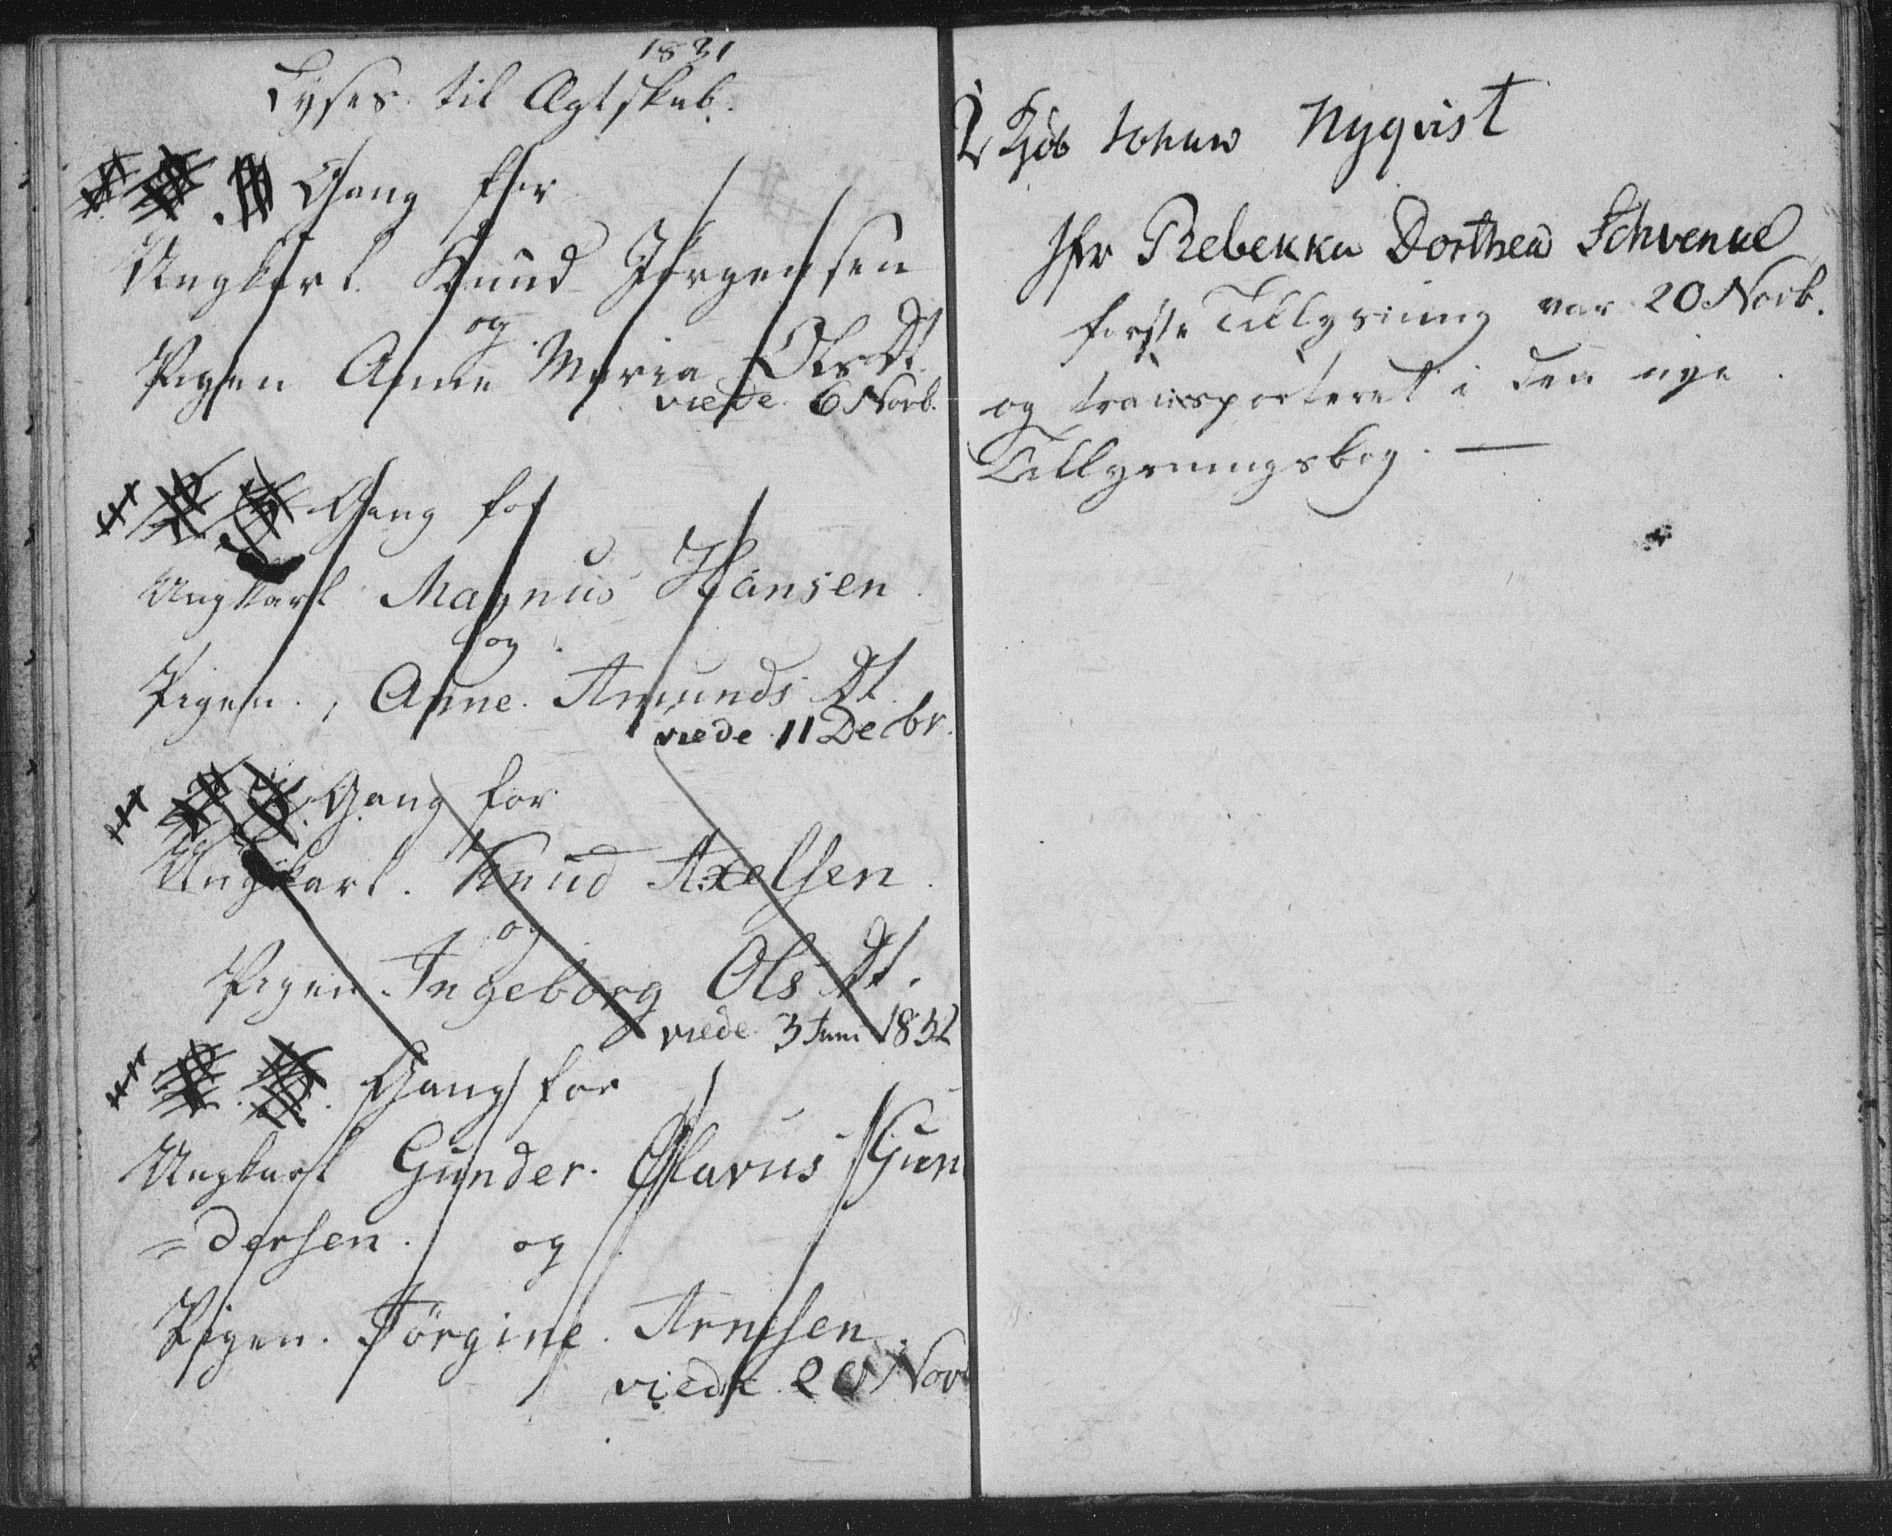 1831
Lyses til Ægtskab.
Gang for
Ungkarl Knud Jørgensen
og
Pigen Anne Maria Olsdt.
viede 6 Novb.
Gang for
Ungkarl Magnus Hansen.
og
Pigen Anne Amunds Dt.
viede 11 Decbr.
Gang for
Ungkarl. Knud Axelsen.
og
Pigen. Ingeborg Ols Dt.
viede 3 Juni 1832
Gang for
Ungkarl Gunder. Olavus Gun
=dersen. og
Pigen. Jörgine. Arnesen.
viede 20 Nov
Johan Nyqvist
Jfr Rebekka Dorthea Schvenke
første Tillysning var 20 Novb.
og transporteret i den nye
Tillysningsbog. —